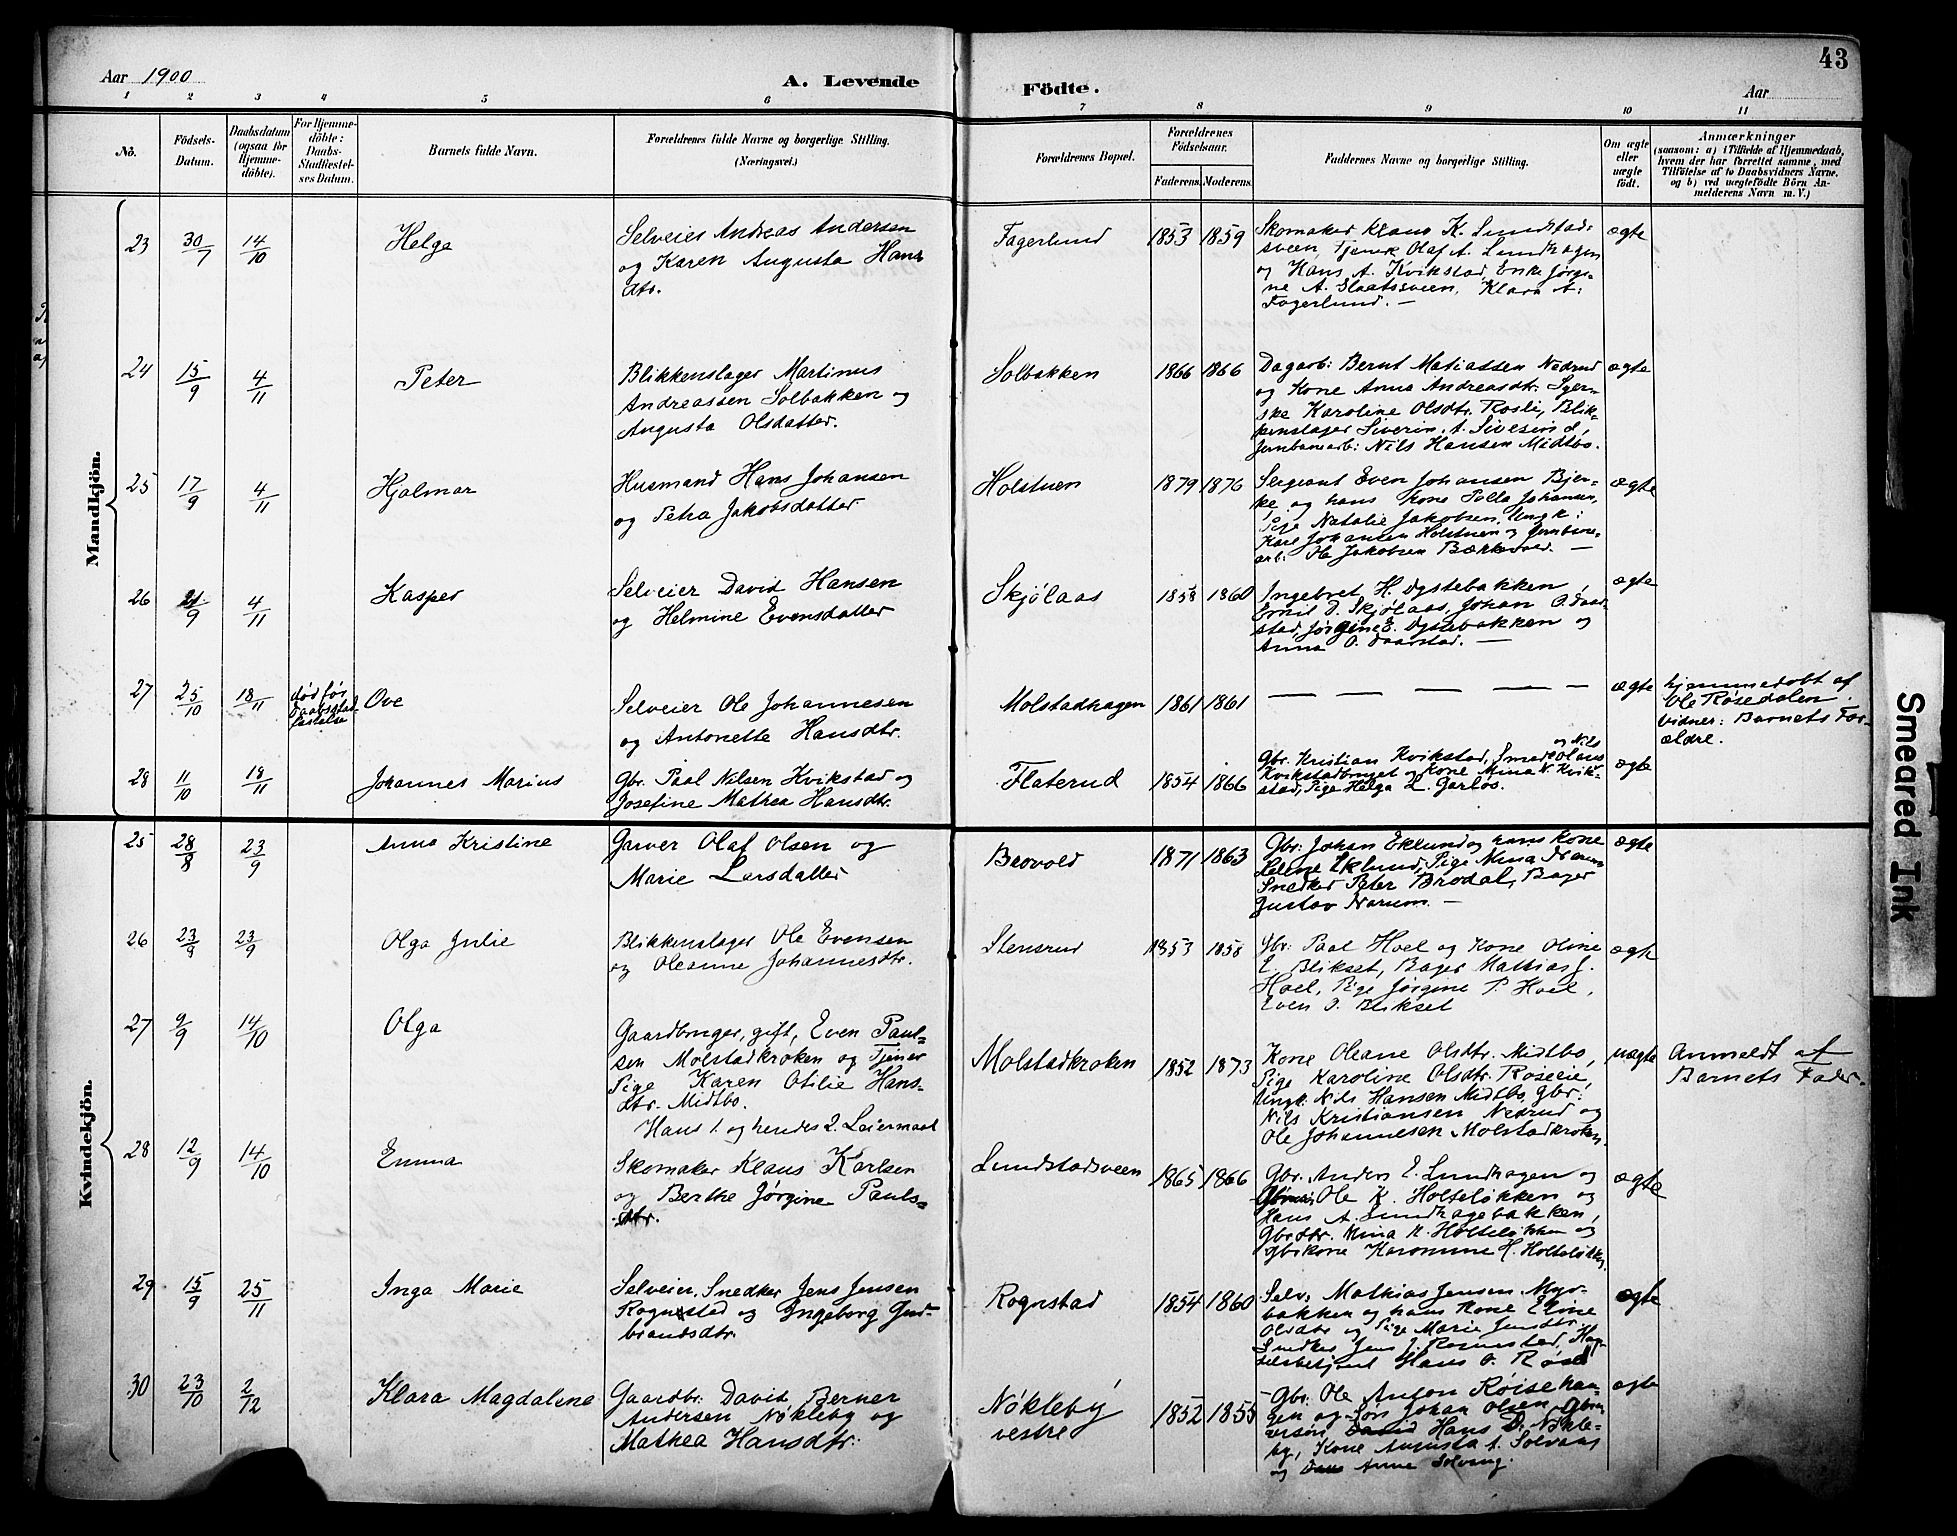 43
Aar 1900
A. Levende
Födte.
Aar
1 2 3 4 5 6 7 8 9 10 11
No.
Födsels-
Datum.
Daabsdatum
(ogsaa för
Hjemme-
döbte).
For Hjemme-
döbte:
Daabs-
Stadfæstel-
ses Datum.
Barnets fulde Navn.
Forældrenes fulde Navne og borgerlige Stilling.
(Næringsvei.)
Forældrenes Bopæl.
Forældrenes
Födselsaar.
Faderens. Moderens.
Faddernes Navne og borgerlige Stilling.
Om ægte
eller
uægte
født.
Anmærkninger
(saasom: a) i Tilfælde af Hjemmedaab,
hvem der har forrettet samme, med
Tilføielse af to Daabsvidners Navne.
og b) ved uægtefødte Börn An-
melderens Navn m. V.)
Mandkjön.
23 30/7 14/10 Helga
Selveier Andreas Andersen
og Karen Augusta Hans
dtr.
Fagerlund 1853 1859
Skomaker Klaus K. Lundstad-
sveen, Tjener Olaf A. Lundhagen
og Hans A. Kvikstad, Enke Jørgi-
ne A. Slaatssveen, Klara A.
Fagerlund. —
ægte
24 15/9 4/11 Peter
Blikkenslager Martinus
Andreassen Solbakken og
Augusta Olsdatter.
Solbakken 1866 1866
Dagarb: Bernt Matiassen Nedrud
og Kone Anna Andreasdtr. Syer-
ske Karoline Olsdtr. Rosli, Blik-
kenslager Siverin A. Sivesind,
Jernbanearb: Nils Hansen Midtbo.
ægte
25 17/9 4/11 Hjalmar
Husmand Hans Johansen
og Petra Jakobsdatter
Holstuen 1879 1876
Sergeant Even Johansen Bjer-
ke og hans Kone Johansen,
Pige Natalie Jakobsen, Ungk:
Karl Johansen Holstuen og Jernbane-
arb: Ole Jakobsen Bækkevold. —
ægte
26 21/9 4/11 Kasper
Selveier David Hansen
og Helmine Evensdatter
Skjølaas 1858 1860
Ingebret H. Dystebakken,
Emil D. Skjølaas, Johan O. Daar-
stad, Jørgine E. Dystebakken og
Anna O. Daarstad. —
ægte
27 25/10 18/11 død før
Daabsstad-
festelse
Ove
Selveier Ole Johannesen
og Antonette Hansdtr.
Molstadhagen 1861 1861
— — — — — —
ægte
hjemmedøbt af
Ole Røsedalen.
Vidner: Barnets For-
ældre.
28 11/10 18/11 Johannes Marius
Gbr. Paal Nilsen Kvikstad og
Josefine Mathea Hansdtr.
Flaterud 1854 1866
og Nils
Gbr. Kristian Kvikstad, Smed Olaus
Kvikstadbruget og Kone Mina N. Kvik-
stad, Pige Helga L. Garlos.
ægte
Kvindekjön.
25 28/8 23/9 Anna Kristine
Garver Olaf Olsen og
Marie Larsdatter
Brovold 1871 1863
Gbr: Johan Eklund og hans Kone
Helene Eklund, Pige Nina Narum
Snedker Peter Brodal, Bager
Gustav Narum. —
ægte
26 23/9 23/9 Olga Julie
Blikkenslager Ole Evensen
og Oleanne Johannesdtr.
Stensrud 1853 1858
Gbr: Paal Hoel og Kone Oline
E. Blikset, Bager Mathias J.
Hoel, Pige Jørgine P. Hoel,
Even O. Blikset
ægte
27 9/9 14/10 Olga
Gaardbruger, gift, Even Paul-
sen Molstadkroken og Tjener
Pige Karen Otilie Hans-
dtr. Midtbo.
Hans 1. og hendes 2. Leiermaal
Molstadkroken 1852 1873
Kone Oleane Olsdtr. Midtbo,
Pige Karoline Olsdtr. Roselie,
Ungk: Nils Hansen Midtbo, Gbr:
Nils Kristiansen Nedrud og
Ole Johannesen Molstadkroken.
uægte
Anmeldt af
Barnets Fader.
28 12/9 14/10 Emma
Skomaker Klaus Karlsen
og Berthe Jørgine Pauls-
dtr.
Lundstadsveen 1865 1866
Gbr. Anders E. Lundhagen og
Ole K. Holteløkken og
Hans A. Lundhagebakken,
Gbrdtr. Mina K. Holteløkken og
Gbrkone Karomine H. Holteløkken
ægte
29 15/9 25/11 Inga Marie
Selveier, Snedker Jens Jensen
Rognstad og Ingeborg Gud-
brandsdtr.
Rognstad 1854 1860
Selv: Mathias Jensen Myr-
bakken og hans Kone Eline
Olsdtr og Pige Marie Jensdtr.
Snedker Jens J. Rognstad,
Hans O.
ægte
30 23/10 2/12 Klara Magdalene
Gaardbr. David Berner
Andersen Nøkleby og
Mathea Hansdtr.
Nøkleby
vestre
1852 1855
Gbr. Ole Anton Røisehau-
gen og Søn Johan Olsen, Gbr-
Hans D. Nøkle-
by, Kone Augusta A. Solvang
og Anne Solvang.
ægte
Smeared Ink